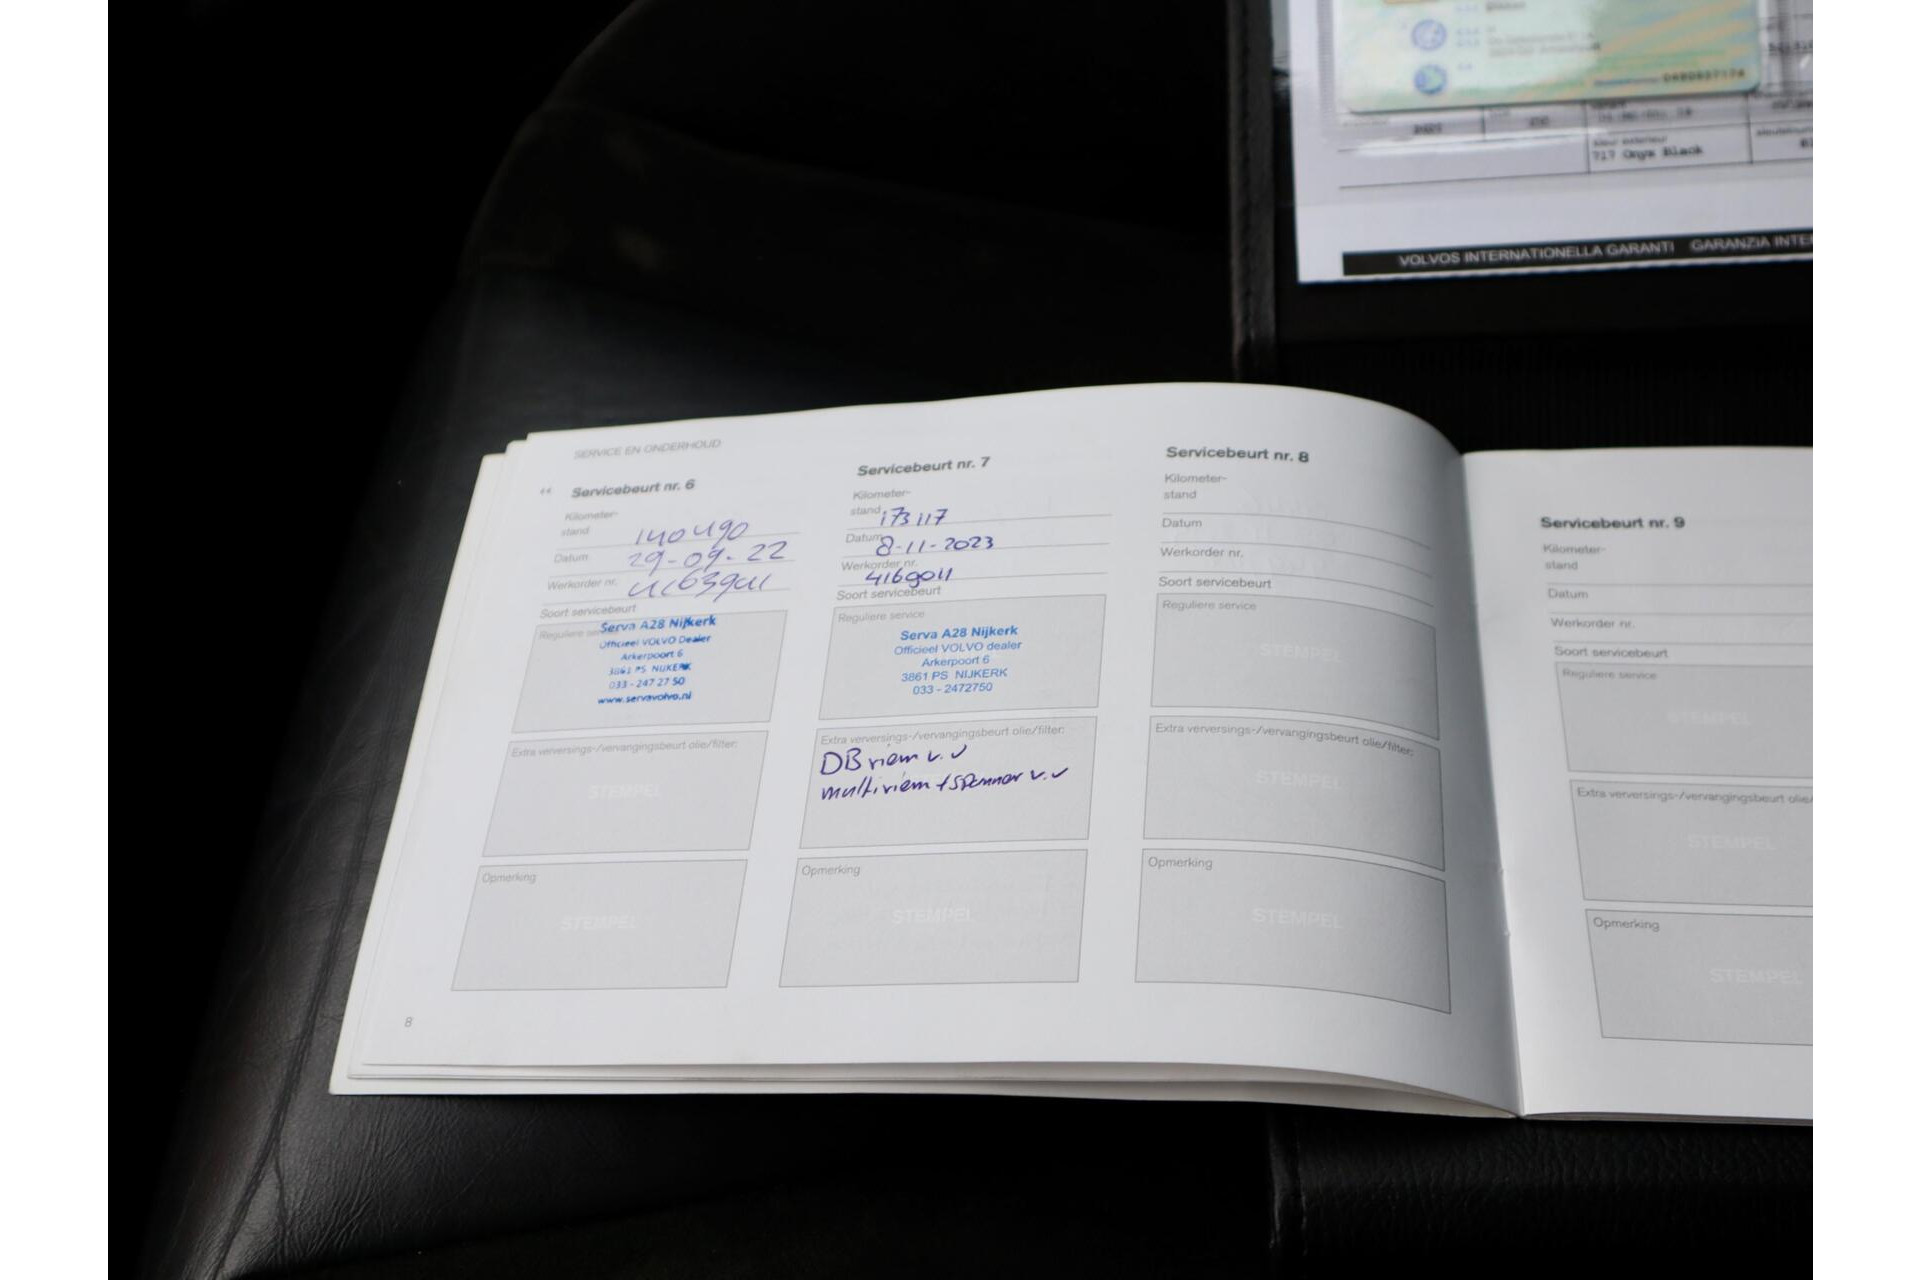 0480937174
717 Onyx Black
VOLVOS INTERNATIONELLA GARANTI GARANZIA INTE
SERVICE EN ONDERHOUD
Servicebeurt nr. 6
Kilometer-
stand 140490
Datum 29-09-22
Werkorder nr.
Soort servicebeurt
Reguliere
Serva A28 Nijkerk
Officieel VOLVO Dealer
Arkerpoort 6
3861 PS NIJKERK
033 - 247 27 50
www.servavolvo.nl
Extra verversings-/vervangingsbeurt olie/filter:
STEMPEL
Opmerking
STEMPEL
8
Servicebeurt nr. 7
Kilometer-
stand 173117
Datum 8-11-2023
Werkorder nr. 4169011
Soort servicebeurt
Reguliere service
Serva A28 Nijkerk
Officieel VOLVO dealer
Arkerpoort 6
3861 PS NIJKERK
033 - 2472750
Extra verversings-/vervangingsbeurt olie/filter:
DB riem v.v
multiriem + spanner v.v
Opmerking
STEMPEL
Servicebeurt nr. 8
Kilometer-
stand
Datum
Werkorder nr.
Soort servicebeurt
Reguliere service
STEMPEL
Extra verversings-/vervangingsbeurt olie/filter:
STEMPEL
Opmerking
STEMPEL
Servicebeurt nr. 9
Kilometer-
stand
Datum
Werkorder nr.
Soort servicebeurt
Reguliere service
STEMPEL
Extra verversings-/vervangingsbeurt olie/
STEMPEL
Opmerking
STEMPEL